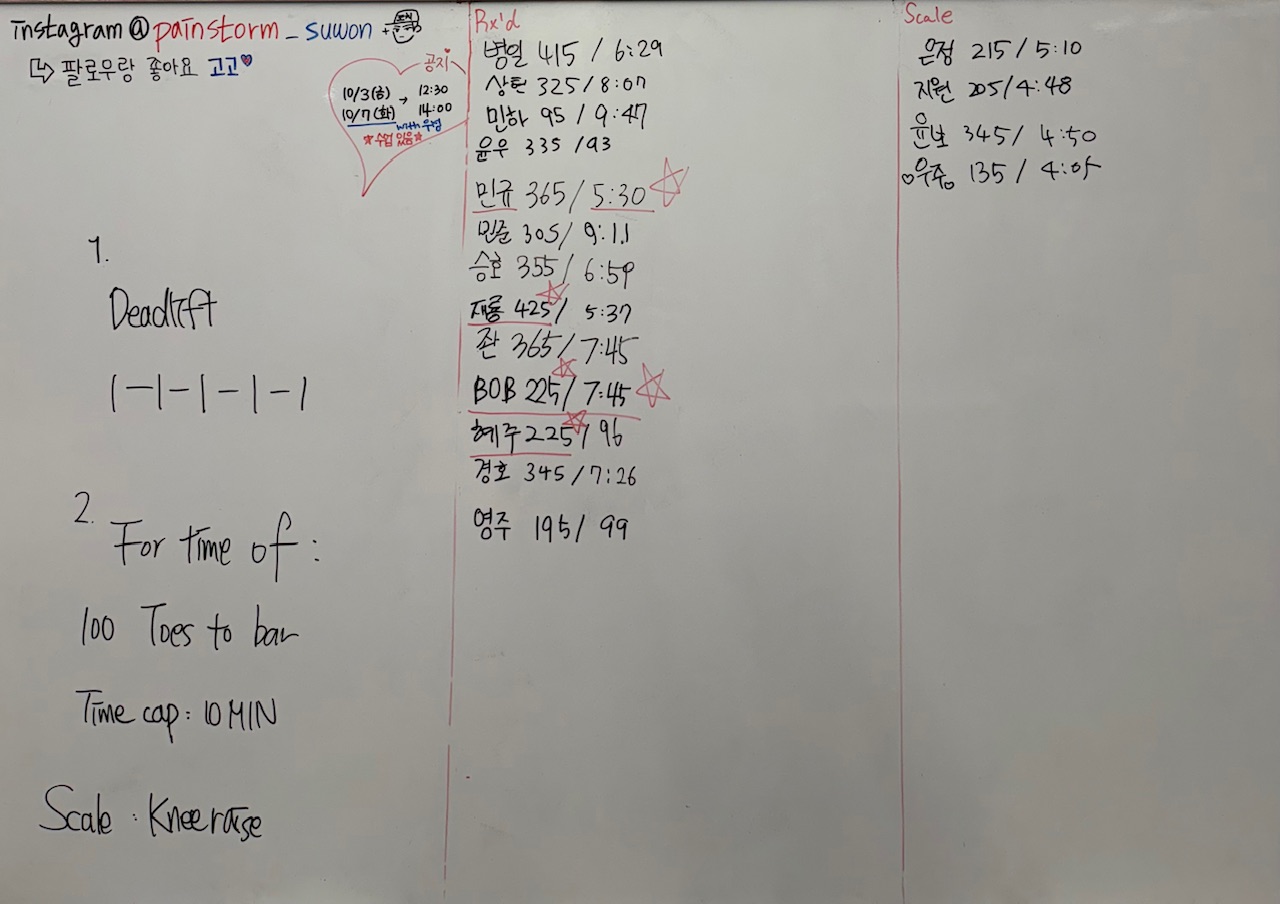 instagram @ painstorm _ suwon +
↳ 팔로우랑 좋아요 고고♥
공지♥
10/3(금) → 12:30
10/7(화) 14:00
with 우성
☆수업 있음☆
1.
Deadlift
1-1-1-1-1
2.
For time of :
100 Toes to bar
Time cap : 10 MIN
Scale : Knee raise
Rx'd
병일 415 / 6:29
상헌 325 / 8:07
민하 95 / 9:47
윤우 335 / 93
민규 365 / 5:30
민준 305 / 9:11
승호 355 / 6:59
재룡 425 / 5:37
존 365 / 7:45
BOB 225 / 7:45
혜주 225 / 96
경호 345 / 7:26
영주 195 / 99
Scale
은정 215 / 5:10
지원 205 / 4:48
윤보 345 / 4:50
♡우주♡ 135 /